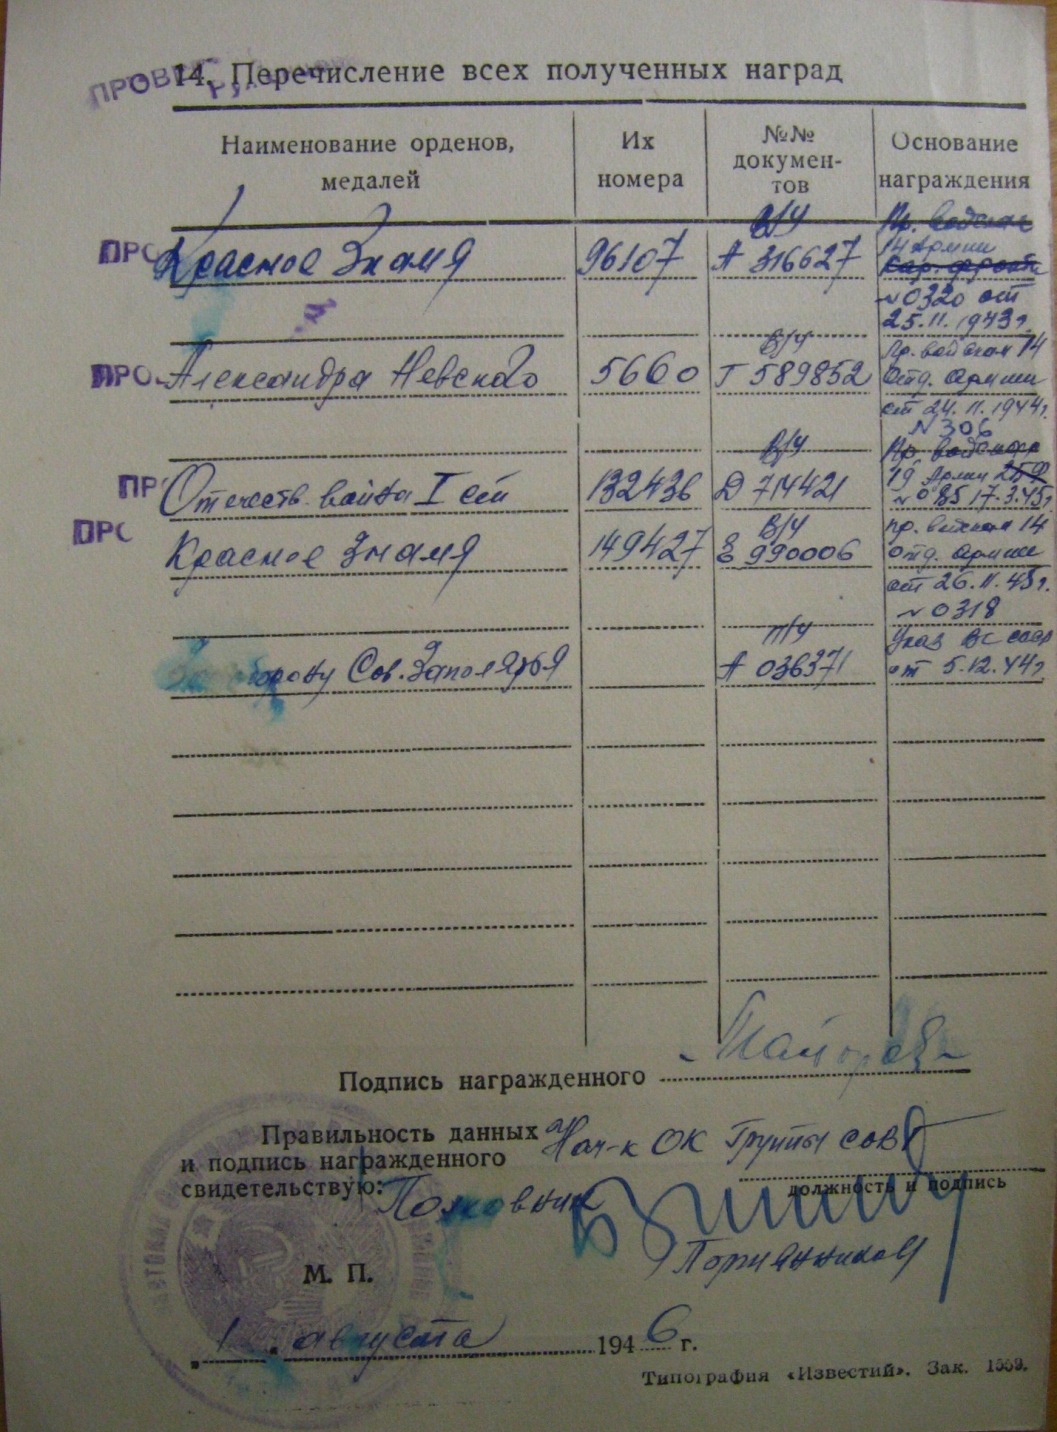 14. Перечисление всех полученных наград
Наименование орденов, медалей
Их номера
№№ докумен-тов
Основание награждения
ПРО Красное Знамя 96107 в/у А 316627
14 Армии
№ 0320 от
25.11.1943г.
ПРО Александра Невского 5660 в/у Г 589852 Пр. войскам 14
Отд. армии
от 24.11.1944г.
№ 306
ПР Отечеств. война I ст 132436 в/у Д 714421
19 Армии
№ 085 17.3.45г.
ПРО Красное Знамя 149427 в/у Е 990006 Пр. войскам 14
Отд. армии
от 26.11.45г.
№ 0318
За оборону Сов. Заполярья п/у А 036371 Указ ВС СССР
от 5.12.44г.
Подпись награжденного
Правильность данных
и подпись награжденного
свидетельствую:
Нач-к ОК Группы сов
должность и подпись
Полковник
М. П.
1 августа 1946 г.
Типография «Известий». Зак. 1559.